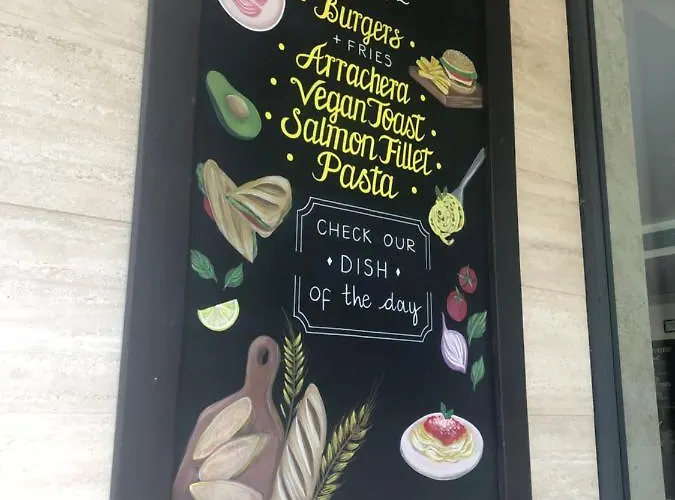 Burgers
+ FRIES
Arrachera
Vegan Toast
Salmon Fillet
Pasta
CHECK OUR
DISH
of the day